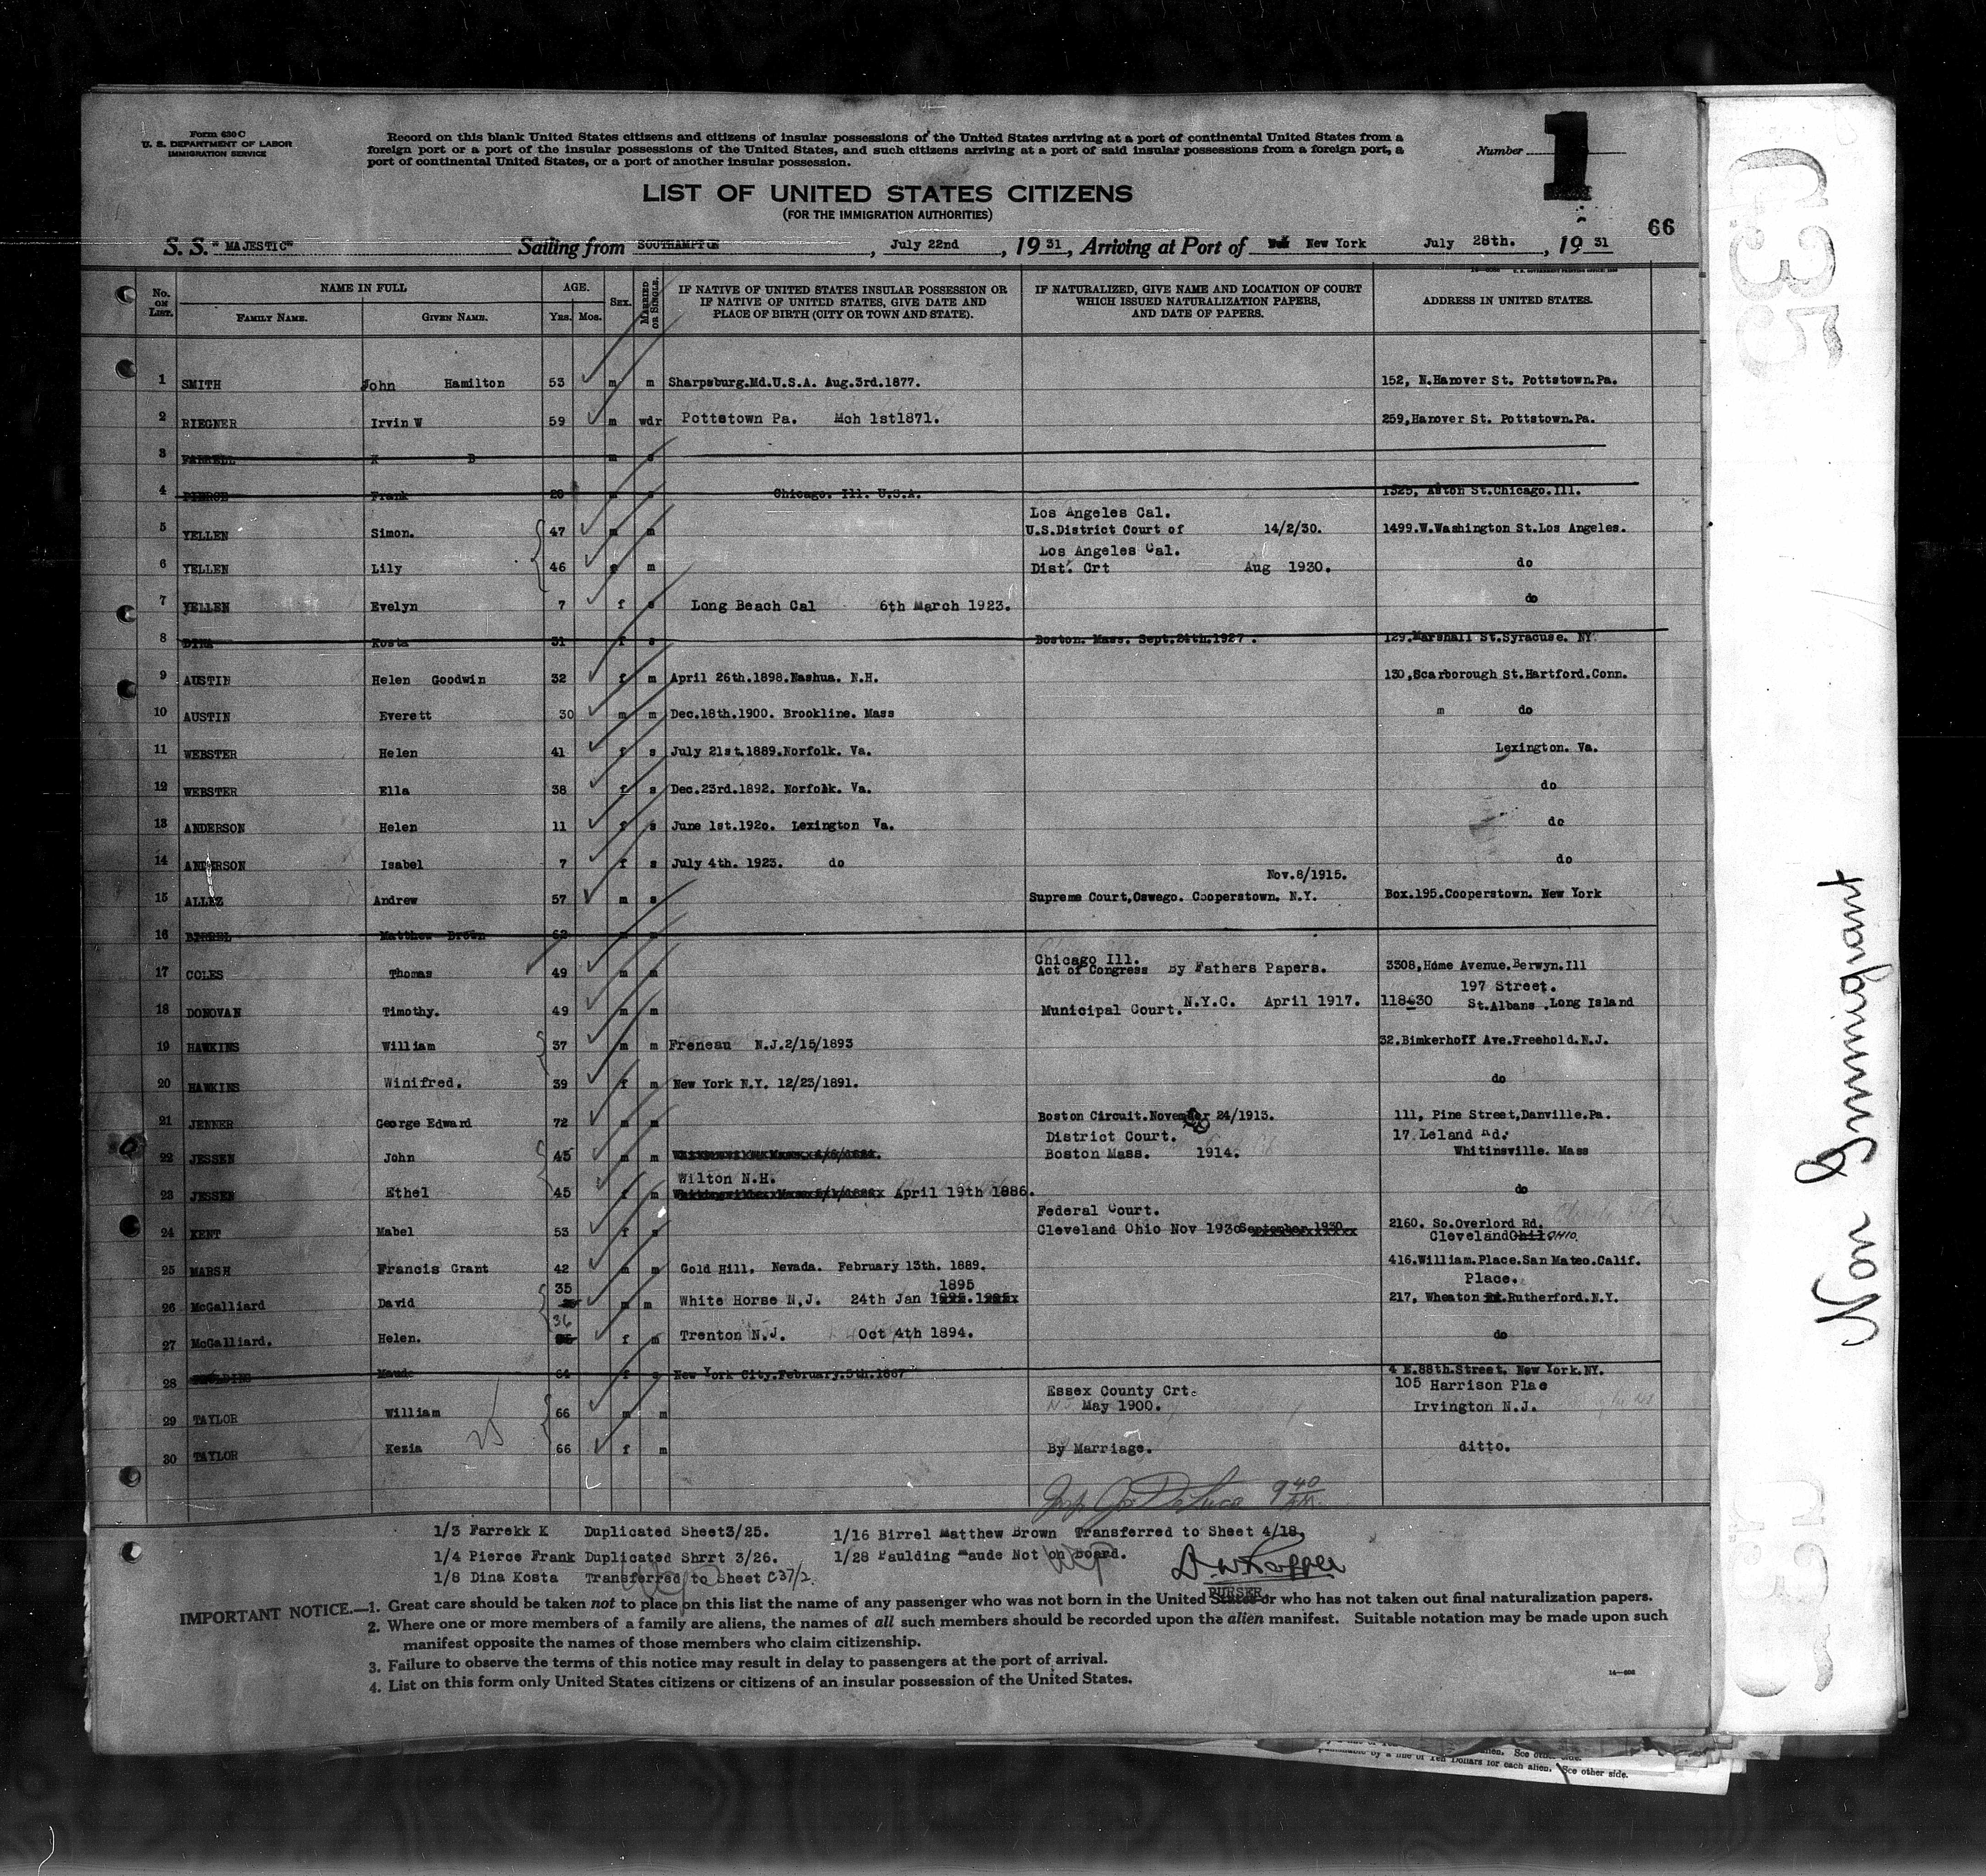 Form 630 C
U. S. DEPARTMENT OF LABOR
IMMIGRATION SERVICE
Record on this blank United States citizens and citizens of insular possessions of the United States arriving at a port of continental United States from a
foreign port or a port of the insular possessions of the United States, and such citizens arriving at a port of said insular possessions from a foreign port, a
port of continental United States, or a port of another insular possession.
Number 1
LIST OF UNITED STATES CITIZENS
(FOR THE IMMIGRATION AUTHORITIES)
66
S. S. "MAJESTIC" Sailing from SOUTHAMPTON, July 22nd, 1931, Arriving at Port of New York July 28th., 1931
No. ON LIST. NAME IN FULL FAMILY NAME. GIVEN NAME. AGE. YRS. MOS. SEX. MARRIED OR SINGLE. IF NATIVE OF UNITED STATES INSULAR POSSESSION OR IF NATIVE OF UNITED STATES, GIVE DATE AND PLACE OF BIRTH (CITY OR TOWN AND STATE). IF NATURALIZED, GIVE NAME AND LOCATION OF COURT WHICH ISSUED NATURALIZATION PAPERS, AND DATE OF PAPERS. ADDRESS IN UNITED STATES.
1 SMITH John Hamilton 53 m m Sharpsburg.Md.U.S.A. Aug.3rd.1877. 152, N.Hanover St. Pottstown.Pa.
2 RIEGNER Irvin W 59 m wdr Pottstown Pa. Mch 1st1871. 259,Hanover St. Pottstown.Pa.
3 FARRELL K B m s
4 PIERCE Frank 28 m s Chicago. Ill. U.S.A. 1325, Aston St.Chicago.Ill.
Los Angeles Cal.
5 YELLEN Simon. 47 m m U.S.District Court of 14/2/30. 1499.W.Washington St.Los Angeles.
Los Angeles Cal.
6 YELLEN Lily 46 m Dist. Crt Aug 1930. do
7 YELLEN Evelyn 7 f s Long Beach Cal 6th March 1923. do
8 DINA Kosta 31 f s Boston. Mass. Sept.24th.1927. 129.Marshall St.Syracuse. NY
9 AUSTIN Helen Goodwin 32 f m April 26th.1898.Nashua. N.H. 130,Scarborough St.Hartford.Conn.
10 AUSTIN Everett 30 m m Dec.18th.1900. Brookline. Mass m do
11 WEBSTER Helen 41 f s July 21st.1889.Norfolk. Va. Lexington. Va.
12 WEBSTER Ella 38 f s Dec.23rd.1892. Norfolk. Va. do
13 ANDERSON Helen 11 f s June 1st.192o. Lexington Va. do
14 ANDERSON Isabel 7 f s July 4th. 1923. do do
Nov.8/1915.
15 ALLEZ Andrew 57 m s Supreme Court,Oswego. Cooperstown. N.Y. Box.195.Cooperstown. New York
16 BIRREL Matthew Brown 62 m m
Chicago Ill.
17 COLES Thomas 49 m m Act of Congress By Fathers Papers. 3308,Home Avenue.Berwyn.Ill
197 Street.
18 DONOVAN Timothy. 49 m m Municipal Court. N.Y.C. April 1917. 118-30 St.Albans .Long Island
19 HAWKINS William 37 m m Freneau N.J.2/15/1893 32.Bimkerhoff Ave.Freehold.N.J.
20 HAWKINS Winifred. 39 f m New York N.Y. 12/23/1891. do
21 JENNER George Edward 72 m m Boston Circuit.November 24/1913. 111, Pine Street,Danville.Pa.
District Court. 17 Leland Rd.
22 JESSEN John 45 m m Boston Mass. 1914. Whitinsville. Mass
Wilton N.H.
23 JESSEN Ethel 45 f m April 19th 1886. do
Federal Court.
24 KENT Mabel 53 f s Cleveland Ohio Nov 1930 September.1930 2160. So.Overlord Rd.
Cleveland Ohio OHIO.
25 MARSH Francis Grant 42 m m Gold Hill, Nevada. February 13th. 1889. 416.William.Place.San Mateo.Calif.
35 1895 Place.
26 McGalliard David m m White Horse N,J. 24th Jan 217, Wheaton Rutherford.N.Y.
36
27 McGalliard. Helen. f m Trenton N.J. Oct 4th 1894. do
28 Maude 64 f s New York City.February.5th.1867 4 E.88th.Street. New York.NY.
Essex County Crt. 105 Harrison Plae
29 TAYLOR William 66 m m May 1900. Irvington N.J.
30 TAYLOR Kezia 66 f m By Marriage. ditto.
9 40 AM.
1/3 Farrekk K Duplicated Sheet3/25. 1/16 Birrel Matthew Brown Transferred to Sheet 4/18,
1/4 Pierce Frank Duplicated Shrrt 3/26. 1/28 Paulding Maude Not on Board.
1/8 Dina Kosta Transferred to Sheet C37/2.
PURSER
IMPORTANT NOTICE.—1. Great care should be taken not to place on this list the name of any passenger who was not born in the United States or who has not taken out final naturalization papers.
2. Where one or more members of a family are aliens, the names of all such members should be recorded upon the alien manifest. Suitable notation may be made upon such
manifest opposite the names of those members who claim citizenship.
3. Failure to observe the terms of this notice may result in delay to passengers at the port of arrival.
4. List on this form only United States citizens or citizens of an insular possession of the United States.
Non Immigrant
See other side.
punishable by a fine of Ten Dollars for each alien. See other side.